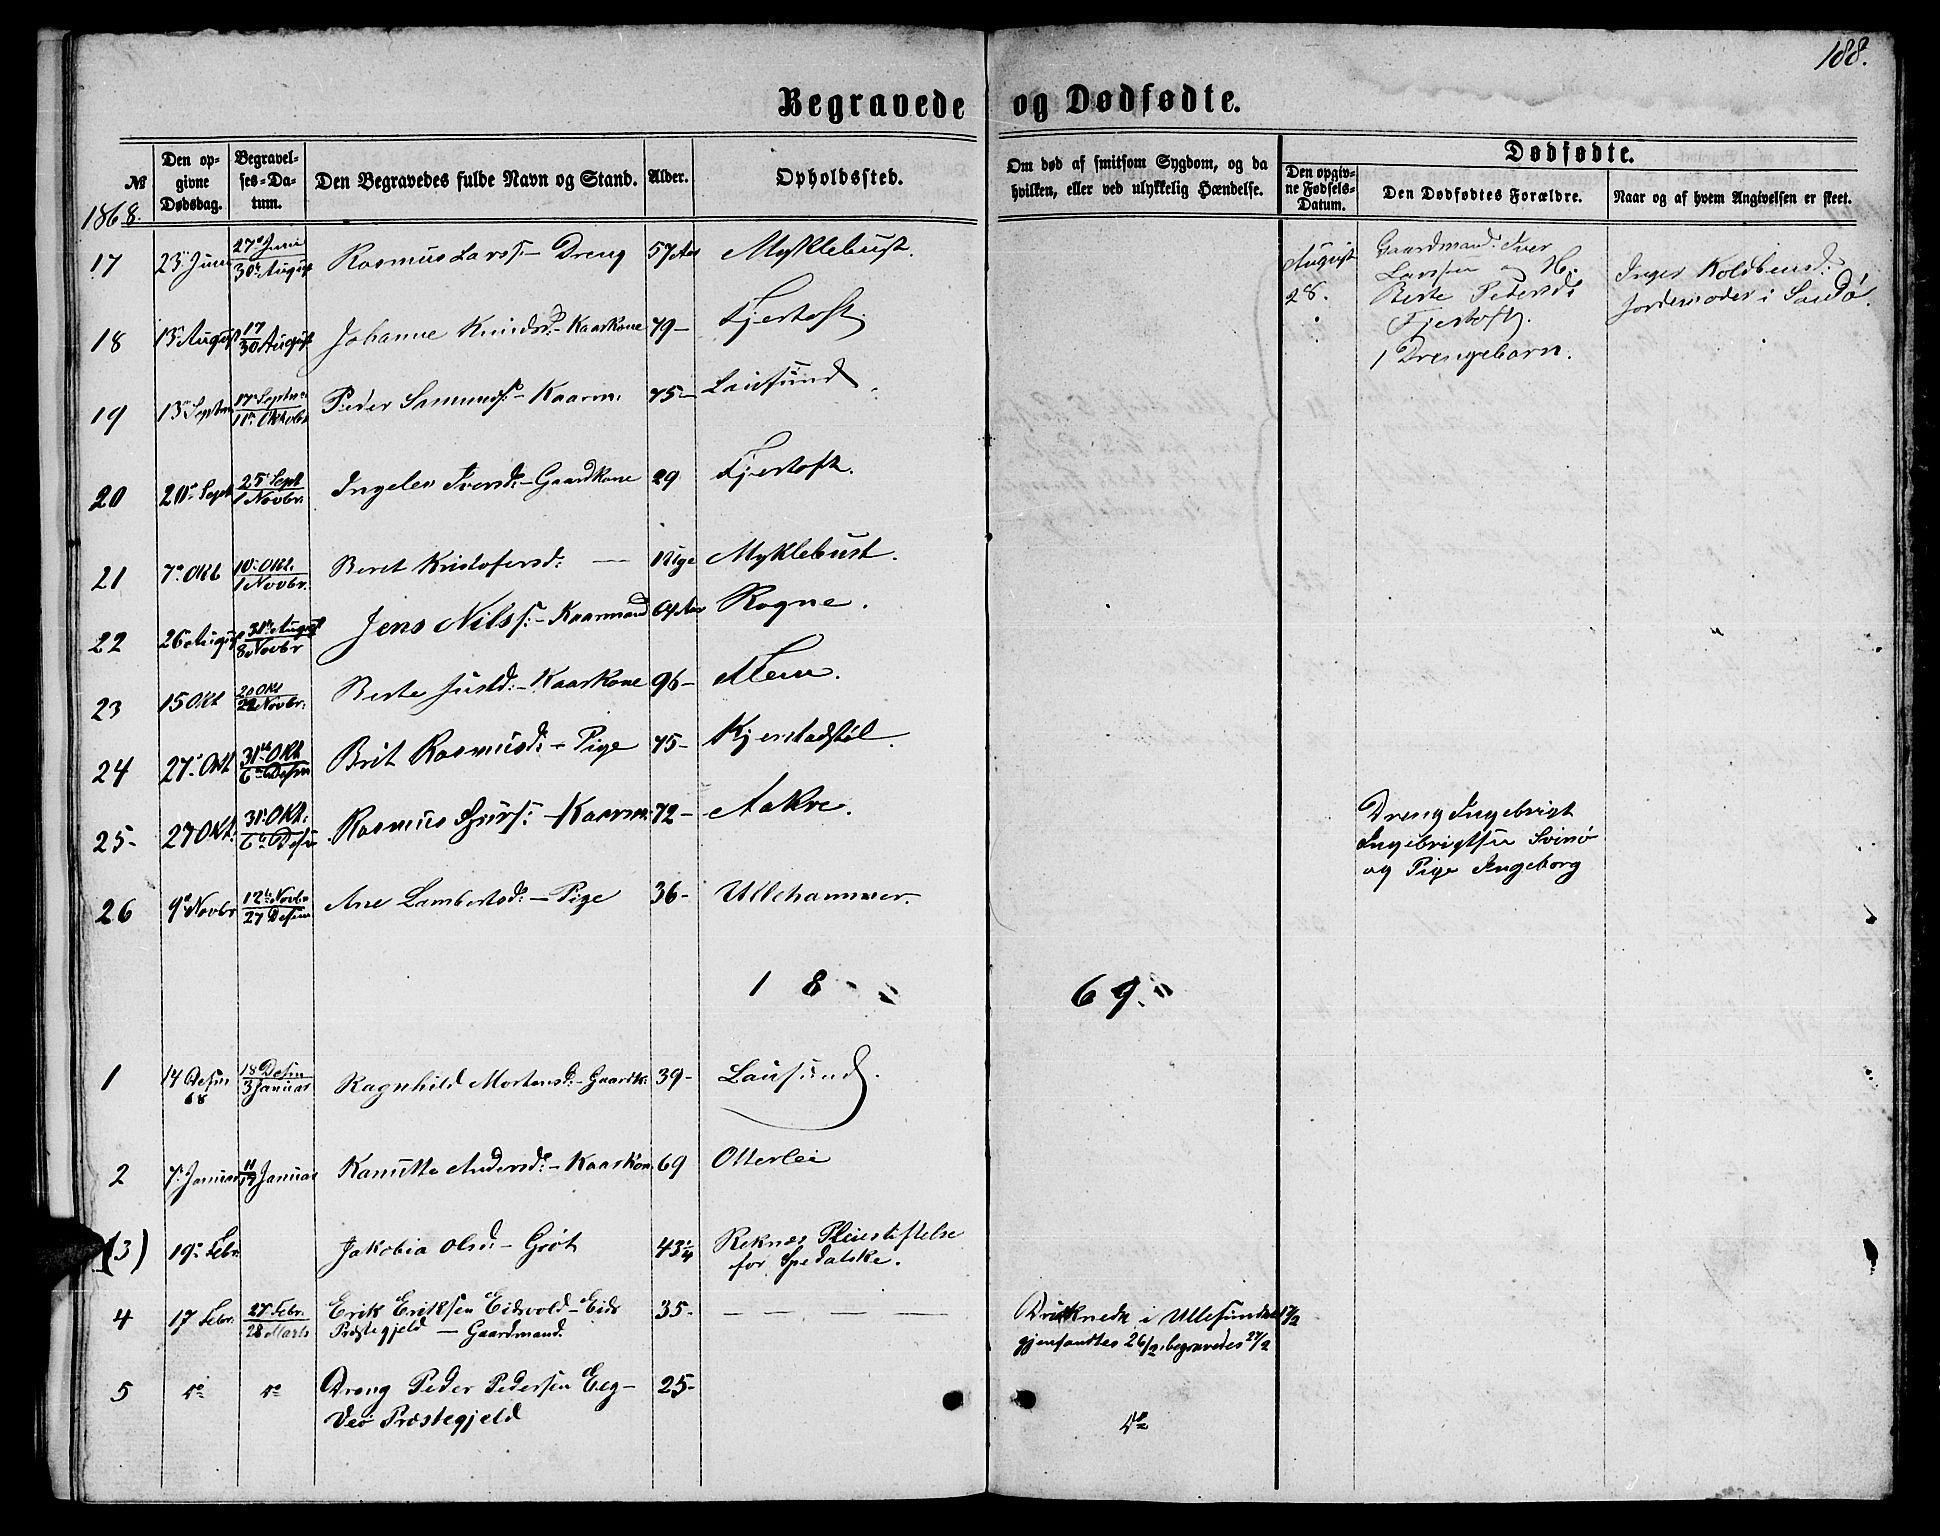 188.
Begravede og Dødfødte.
№
Den opgivne Dødsdag.
Begravelses-Datum.
Den Begravedes fulde Navn og Stand.
Alder.
Opholdssted.
Om død af smitsom Sygdom, og da hvilken, eller ved ulykkelig Hændelse.
Dødfødte.
Den opgivne Fødsels-Datum.
Den Dødfødtes Forældre.
Naar og af hvem Angivelsen er skeet.
1868.
17 23 Juni 27 Juni / 30 August Rasmus Larss: – Dreng 57 Aar Myklebust.
18 13 August 17 / 30 August Johanne Knudsd: – Kaarkone 79 – Fjertoft.
19 13 Septm 17 Septm / 11 Oktobr Peder Samunds: – Kaarm. 75 – Lausund.
20 20 Sept 25 Sept / 1 Novbr. Ingelev Iversd: – Gaardkone 29 Fjertoft.
21 7 Okt 10 Okt. / 1 Novbr. Beret Kristofersd: — 1 Uge Myklebust.
22 26 August 31 August / 8 Novbr Jens Nilss: – Kaarmand 64 Aar Rogne.
23 15 Okt 20 Okt / 22 Novbr. Berte Justd: – Kaarkone 96 –
24 27 Okt 31 Okt / 6 Desm Brit Rasmusd: – Pige 75 – Kjerstadstøl.
25 – 27 Okt. 31 Okt. / 6 Desm Rasmus – Kaarm: 72 – Aakre.
26 9 Novbr 12 Novbr / 27 Desm Ane Lambertsd: – Pige 36 – Ullehammer.
August
28.
Gaardmand Iver
Larssen og H:
Berte Pedersd:
Fjertoft.
1 Drengebarn.
Inger Koldbensd:
Jordemoder i Sandø.
Dreng Ingebrigt
Ingebrigtsen Svinø
og Pige Ingeborg
18 69.
1 14 Desm 68 18 Desm / 3 Januar Ragnhild Mortensd: – Gaardk: 39 – Lausund.
2 7 Januar 11 / 17 Januar Kanutte Andersd: – Kaarkon 69 Otterlei
(3) 19 Febr. Jakobia Olsd: – Grøt 43 1/4 Reknæs Pleiestiftelse
for Spedalske.
4 17 Febr. 27 Febr. / 28 Marts Erik Eriksen Eidsvold – Eids
Præstegjeld – Gaardmand. 35 – — — — —
Druknede i Ullasundet 17/2
gjenfandtes 26/2, begravedes 27/2
5 do do Dreng Peder Pedersen Eeg – 25 –
Veø Præstegjeld
do